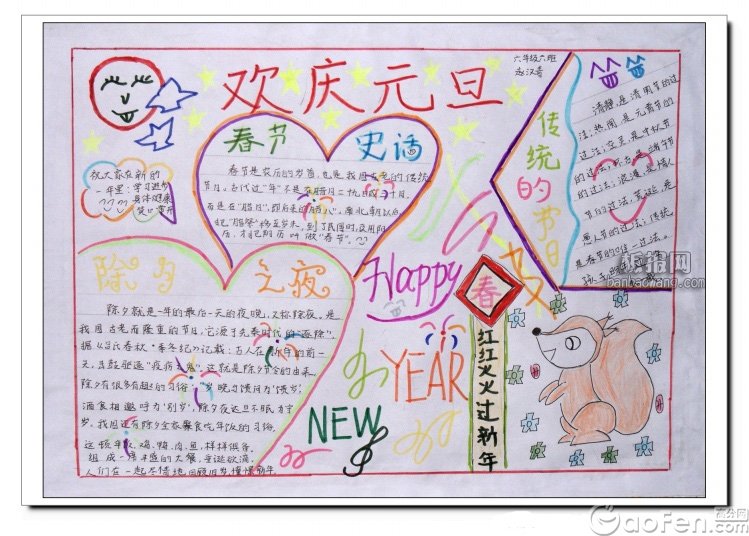 欢庆元旦
六年级六班
赵汉青
祝大家在新的
一年里:学习进步
身体健康
笑口常开
春节 史话
春节是农历的岁首,也是我国古老的传统
节日。古代过“年”不是在腊月二十九日或三十日,
而是在“腊日”,即后来的“腊八”。南北朝以后,
把“腊祭”移至岁末,到了民国时,改用阳
历,才把阴历叫做“春节”。
除夕 之夜
除夕就是一年的最后一天的夜晚,又称除夜,是
我国古老而隆重的节日,它源于先秦时代的“逐除”,
据《吕氏春秋·季冬纪》记载:古人在新年的前一
天,击鼓驱逐“疫疠之鬼”,这就是除夕节令的由来。
除夕有很多有趣的习俗:“岁晚相馈问为‘馈岁’
酒食相邀呼为‘别岁’,除夕夜达旦不眠为守
岁。我国还有除夕全家聚食吃年饭的习俗。
这顿年饭,鸡、鸭、肉、鱼,样样俱备。
组成一席丰盛的大餐,垂涎欲滴
人们在一起尽情地回顾旧岁憧憬新年。
传统的节日
清静,是清明节的过
法;热闹,是元宵节的
过法;空灵,是中秋节
是春节的唯一过法。
Happy
NEW YEAR
春
红红火火过新年
板报网
banbaowang.com
高分网
Gaofen.com